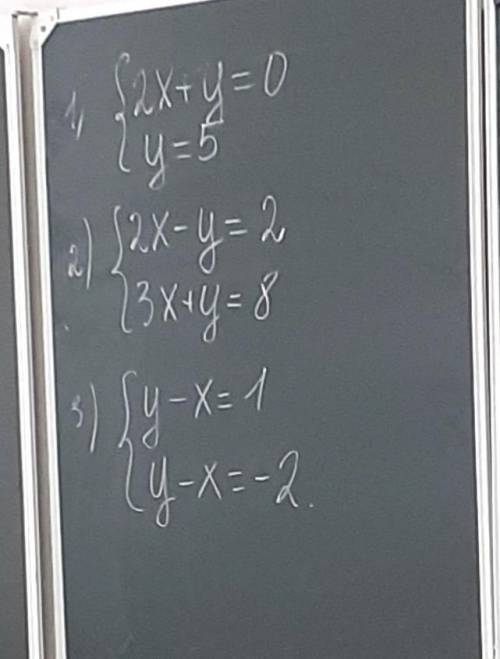 1) { 2x+y=0
y=5
2) { 2x-y=2
3x+y=8
3) { y-x=1
y-x=-2.